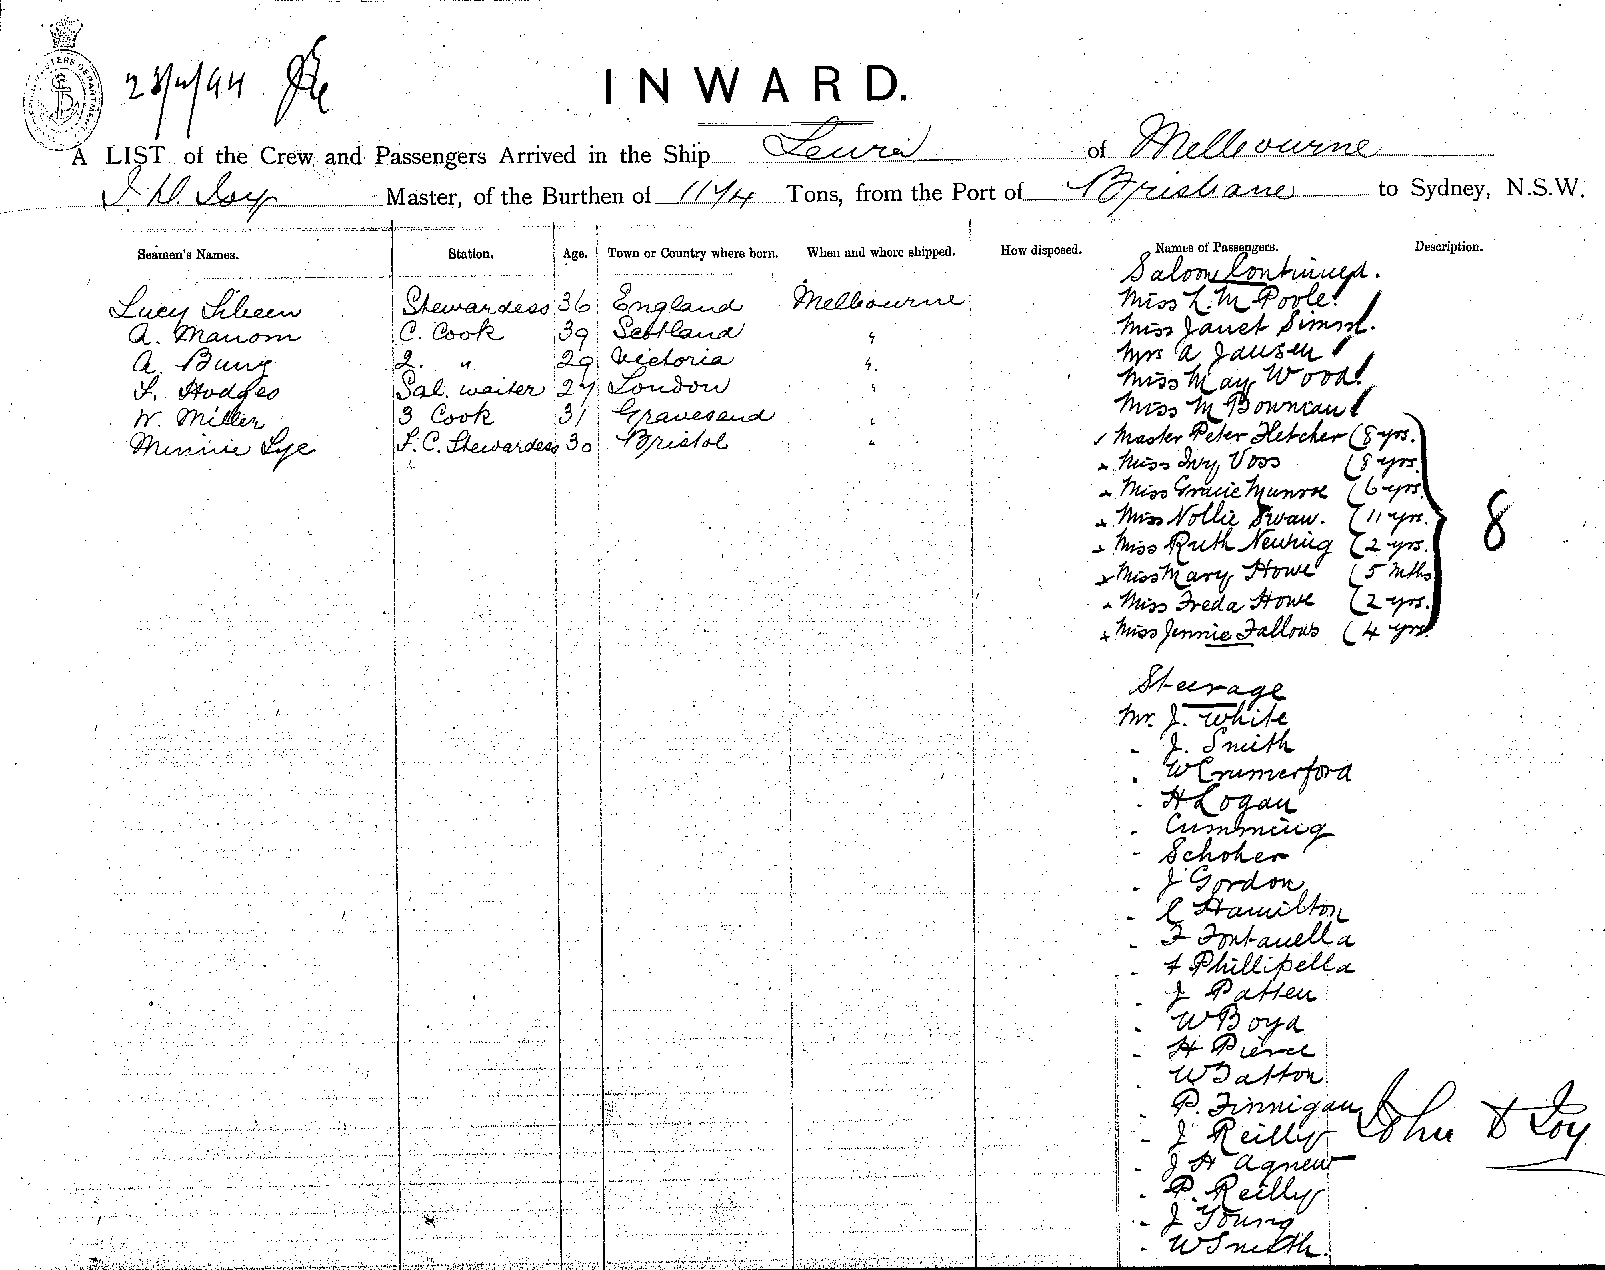 INWARD.
A LIST of the Crew and Passengers Arrived in the Ship of Melbourne
Master, of the Burthen of 1174 Tons, from the Port of Brisbane to Sydney, N.S.W.
Seamen's Names. Station. Age. Town or Country where born. When and where shipped. How disposed. Names of Passengers. Description.
Saloon Continued.
Lucy Stewardess 36 England Melbourne Miss L. M Poole
A. C. Cook 39 Scotland " Miss Janet
A. 2. " 29 Victoria " Mrs A Jansen
Hodges Sal. waiter 27 London " Miss May Wood
W. Miller 3 Cook 31 Gravesend " Miss M Bowman
Minnie Lye F. C. Stewardess 30 Bristol " Master Peter Fletcher (8 yrs.
" Miss Ivy Voss (8 yrs.
" Miss Gracie Munroe (6 yrs.
" Miss Nollie Swan. (11 yrs. 8
" Miss Ruth (2 yrs.
" Miss Mary Howe (5 mths
" Miss Freda Howe (2 yrs.
" Miss Jennie Fallows (4 yrs.
Steerage
Mr. J. White
" J. Smith
" W Crumerford
" H Logan
" Cumming
" Schoher
" J Gordon
" C Hamilton
" F Fontanella
" Phillipella
" J Patten
" W Boyd
" H Pierce
" W Tatton
" P. Finnigan
" J Reilly John D Joy
" J H Agnew
" P. Reilly
" J Young
" W Smith.